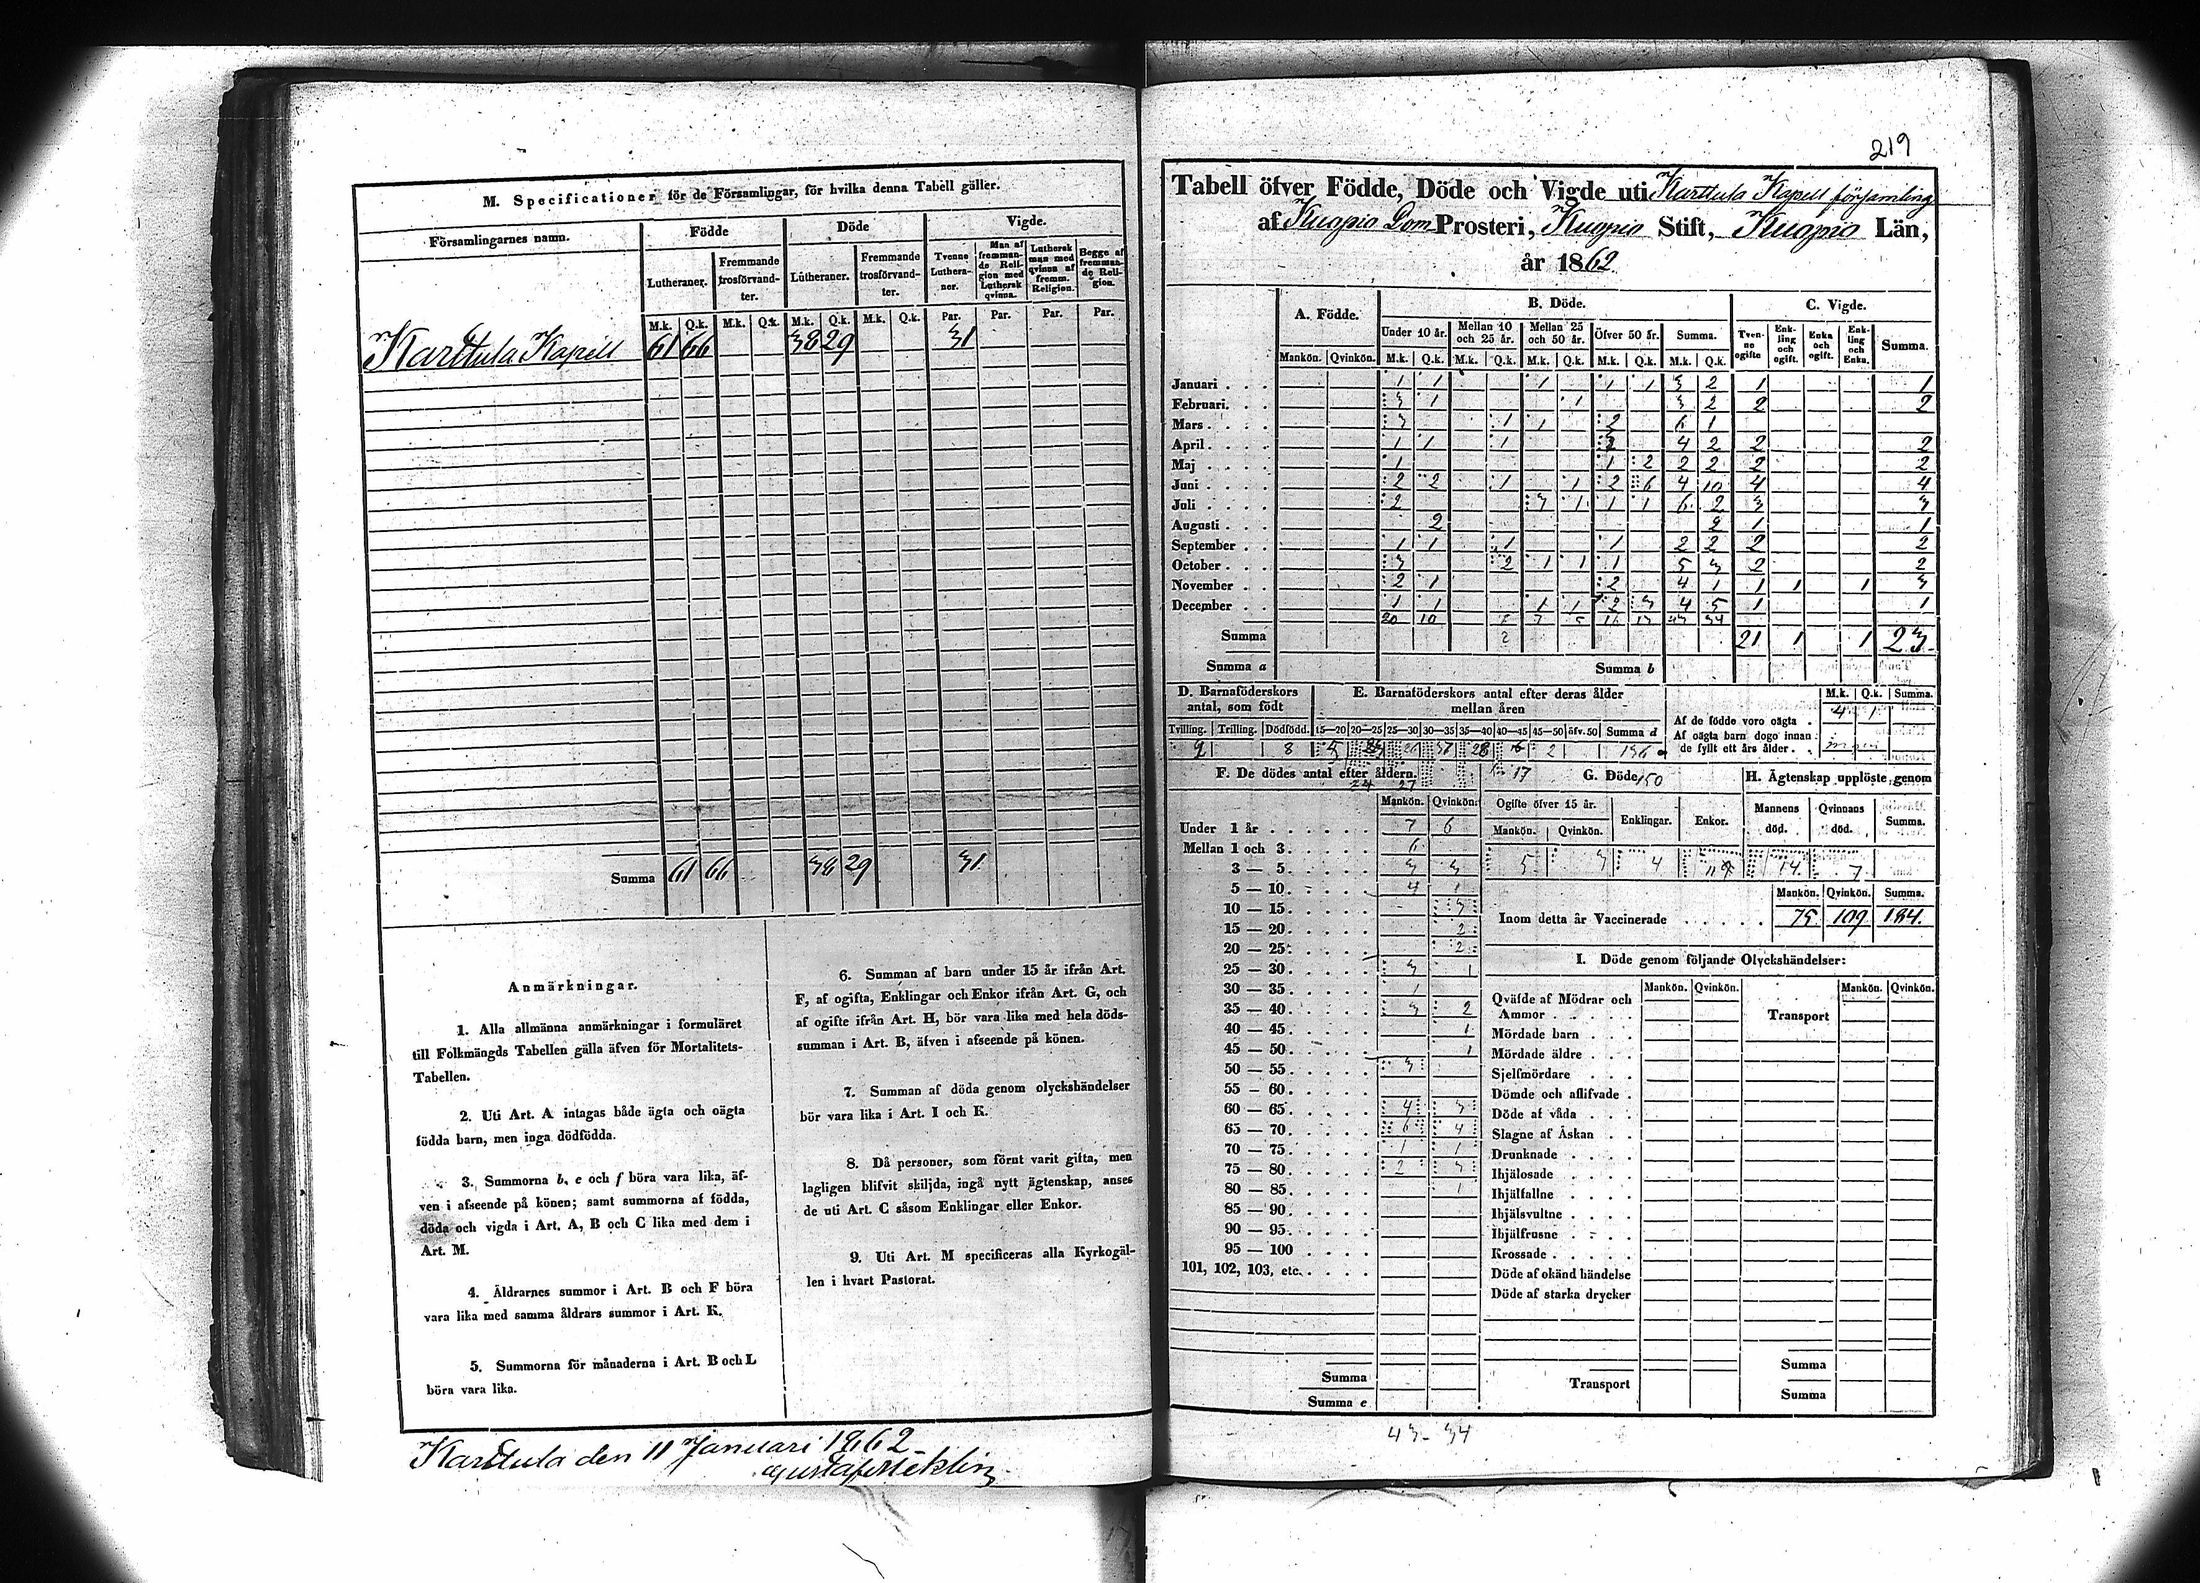 M. Specificationer för de Församlingar, för hvilka denna Tabell gäller.
Församlingarnes namn. Födde Döde Vigde.
Lutheraner. Fremmande trosförvandter. Lutheraner. Fremmande trosförvandter. Tvenne Lutheraner. Man af fremmande Religion med Luthersk qvinna. Luthersk man med qvinna af fremm. Religion. Begge af fremmande Religion.
M.k. Q.k. M.k. Q.k. M.k. Q.k. M.k. Q.k. Par. Par. Par. Par.
Karttula Kapell 61 66 38 29 31
Summa 61 66 38 29 31
Anmärkningar.
1. Alla allmänna anmärkningar i formuläret
till Folkmängds Tabellen gälla äfven för Mortalitets-
Tabellen.
2. Uti Art. A intagas både ägta och oägta
födda barn, men inga dödfödda.
3. Summorna b, e och f böra vara lika, äf-
ven i afseende på könen; samt summorna af födda,
döda och vigda i Art. A, B och C lika med dem i
Art. M.
4. Äldrarnes summor i Art. B och F böra
vara lika med samma åldrars summor i Art. K.
5. Summorna för månaderna i Art. B och L
böra vara lika.
6. Summan af barn under 15 år ifrån Art.
F, af ogifta, Enklingar och Enkor ifrån Art. G, och
af ogifte ifrån Art. H, bör vara lika med hela döds-
summan i Art. B, äfven i afseende på könen.
7. Summan af döda genom olyckshändelser
bör vara lika i Art. I och K.
8. Då personer, som förut varit gifta, men
lagligen blifvit skiljda, ingå nytt ägtenskap, anses
de uti Art. C såsom Enklingar eller Enkor.
9. Uti Art. M specificeras alla Kyrkogäl-
len i hvart Pastorat.
Karttula den 11 Januari 1862
219
Tabell öfver Födde, Döde och Vigde uti Karttula Kapell församling
af Kuopio Dom Prosteri, Kuopio Stift, Kuopio Län,
år 1862
A. Födde. B. Döde. C. Vigde.
Under 10 år. Mellan 10 och 25 år. Mellan 25 och 50 år. Öfver 50 år. Summa. Tvenne ogifte Enkling och ogift. Enka och ogift. Enkling och Enka. Summa.
Mankön. Qvinkön. M.k. Q.k. M.k. Q.k. M.k. Q.k. M.k. Q.k. M.k. Q.k.
Januari 1 1 1 1 1 3 2 1 1
Februari 3 1 1 3 2 2 2
Mars 3 1 1 2 6 1
April 1 1 1 3 4 2 2 2
Maj 1 1 2 2 2 2 2
Juni 2 2 1 1 2 6 4 10 4 4
Juli 2 3 1 1 1 6 2 3 3
Augusti 2 2 1 1
September 1 1 1 1 2 2 2 2
October 3 2 1 1 1 5 3 2 2
November 2 1 2 4 1 1 1 1 3
December 1 1 1 1 2 3 4 5 1 1
20 10 7 7 5 16 13 43 34
Summa 2 21 1 1 23
Summa a Summa b
D. Barnaföderskors antal, som födt E. Barnaföderskors antal efter deras ålder mellan åren
M.k. Q.k. Summa.
Af de födde voro oägta 4 1
Af oägta barn dogo innan de fyllt ett års ålder.
Tvilling. Trilling. Dödfödd. 15—20 20—25 25—30 30—35 35—40 40—45 45—50 öfv. 50 Summa d
2 8 37 28 16 2 136
F. De dödes antal efter åldern. G. Döde 150 H. Ägtenskap upplöste genom
24 27 17
Mankön. Qvinkön. Ogifte öfver 15 år. Mankön. Qvinkön. Enklingar. Enkor. Mannens död. Qvinnans död. Summa.
5 3 4 14 7
Under 1 år 7 6
Mellan 1 och 3 6
3 — 5 3 3
5 — 10 4 1
10 — 15 3
15 — 20 2
20 — 25 2
25 — 30 3 1
30 — 35 1
35 — 40 3 2
40 — 45 1
45 — 50 1
50 — 55 3
55 — 60
60 — 65 4 3
65 — 70 6 4
70 — 75 1 1
75 — 80 2 3
80 — 85 1
85 — 90
90 — 95
95 — 100
101, 102, 103, etc.
Summa
Summa e
43 - 34
Mankön. Qvinkön. Summa.
Inom detta år Vaccinerade 75 109 184.
I. Döde genom följande Olyckshändelser:
Mankön. Qvinkön. Mankön. Qvinkön.
Qväfde af Mödrar och Ammor Transport
Mördade barn
Mördade äldre
Sjelfmördare
Dömde och aflifvade
Döde af våda
Slagne af Åskan
Drunknade
Ihjälosade
Ihjälfallne
Ihjälsvultne
Ihjälfrusne
Krossade
Döde af okänd händelse
Döde af starka drycker
Summa
Transport
Summa